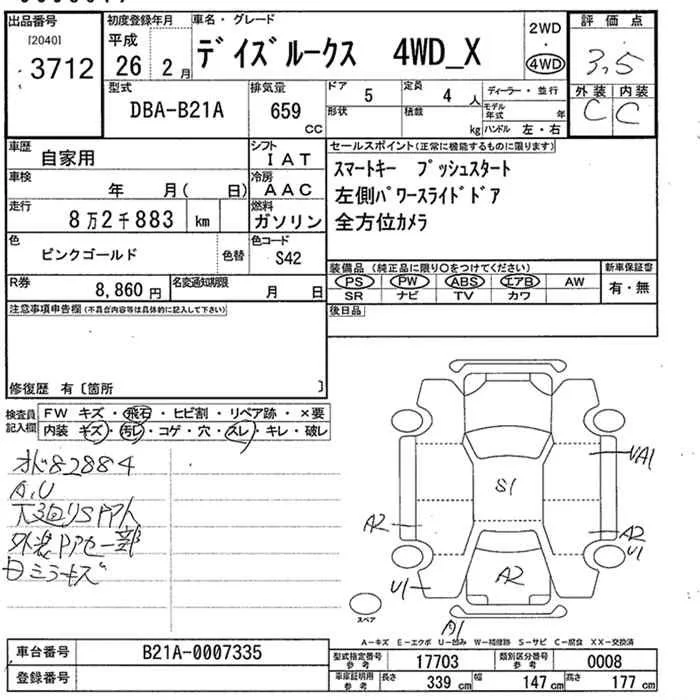 出品番号
[2040]
3712
初度登録年月
平成
26年 2月
車名・グレード
デイズルークス 4WD_X
2WD
・
4WD
評価点
3.5
外装 内装
C C
型式
DBA-B21A
排気量
659
CC
ドア
5
定員
4 人
形状
積載
kg
ディーラー・並行
モデル年式 年
ハンドル 左・右
車歴
自家用
シフト
IAT
車検
年 月( 日)
冷房
AAC
走行
8万2千883 km
燃料
ガソリン
色
ピンクゴールド
色替
色コード
S42
R券
8,860円
名変通知期限
月 日
セールスポイント(正常に機能するものに限ります)
スマートキー プッシュスタート
左側パワースライドドア
全方位カメラ
装備品 (純正品に限り○をつけてください)
PS PW ABS エアB AW
SR ナビ TV カワ
新車保証書
有・無
後日品
注意事項申告欄(不具合内容等は具体的に記入して下さい)
修復歴 有〔箇所 〕
検査員記入欄
FW キズ・飛石・ヒビ割・リペア跡・×要
内装 キズ・汚レ・コゲ・穴・スレ・キレ・破レ
オド82884
A,U
下廻りS
外装 一部
ミラーキズ
VA1
S1
A2
A2
U1
U1
A2
A1
スペア
A－キズ E－エクボ U－凹み W－補修跡 S－サビ C－腐食 XX－交換済
車台番号
B21A-0007335
登録番号
型式指定番号
参考
17703
類別区分番号
参考
0008
車庫証明用
参考
長さ 339 cm
幅 147 cm
高さ 177 cm